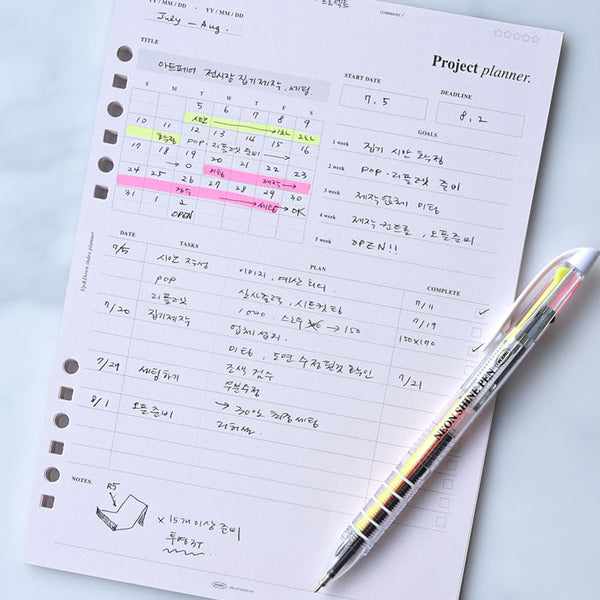 YY / MM / DD - YY / MM / DD
July - Aug.
comment /
Project planner.
TITLE
아트페어 전시장 집기제작, 세팅
START DATE
7. 5
DEADLINE
8. 2
S M T W T F S
5 6 7 8 9
시안 1차 2차
10 11 12 13 14 15 16
POP·리플렛 준비
17 18 19 20 21 22 23
미팅 제작
24 25 26 27 28 29 30
세팅 OK
31 1 2
OPEN
GOALS
1 week 집기 시안
2 week POP·리플렛 준비
3 week 제작업체 미팅
4 week 제작 컨트롤, 오픈준비.
5 week OPEN!!
DATE TASKS PLAN COMPLETE
7/5 시안 작성 이미지, 예산 7/11
POP 실사출력, 시트컷팅 7/19
리플렛 1000. → 150 150x170
7/20 집기제작 업체
미팅, 도면 수정 7/21
조색 검수
부분수정
7/29 세팅하기
8/1 오픈준비 → 30일 최종세팅
리허설.
Up&Down index planner
NOTES.
R5
x 15개 이상 준비
투명
NEON SHINE PEN